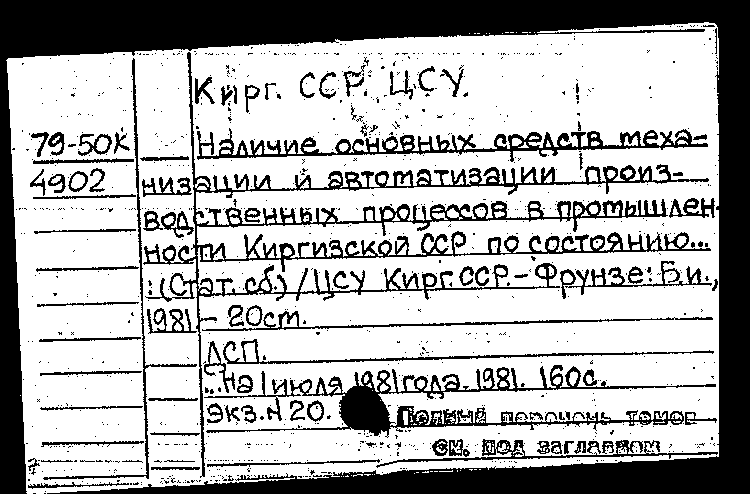 Кирг. ССР. ЦСУ.
79-50К Наличие основных средств меха-
4902 низации и автоматизации произ-
водственных процессов в промышлен-
ности Киргизской ССР по состоянию...
: (Стат. сб.) / ЦСУ Кирг. ССР. - Фрунзе: Б.и.,
1981 - 20см.
ДСП.
...На 1 июля 1981 года. 1981. 160с.
Экз. N 20. Полный перечень томов
см. под заглавием